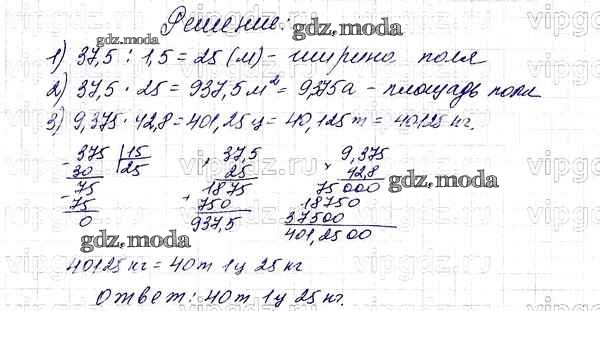 Решение:
gdz.moda
gdz.moda
1) 37,5 : 1,5 = 25 (м) - ширина поля
2) 37,5 · 25 = 937,5 м² = 9,375 а - площадь поля
3) 9,375 · 42,8 = 401,25 ц = 40,125 т = 40125 кг.
- 375 | 15
30 25
- 75
75
0
× 37,5
25
1875
+ 750
937,5
× 9,375
42,8
75000
18750
37500
401,2500
gdz.moda
gdz.moda
40125 кг = 40 т 1 ц 25 кг
Ответ: 40 т 1 ц 25 кг.
vipgdz